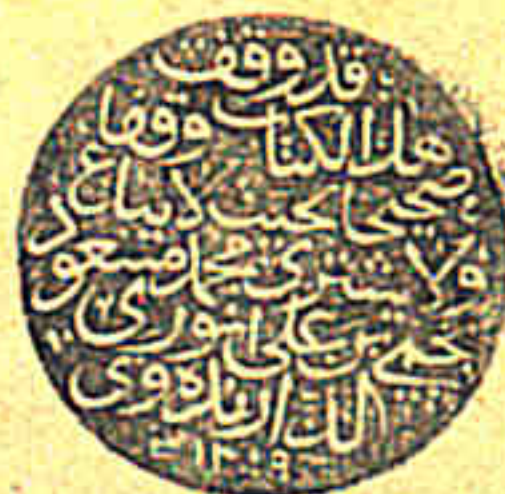 قد وقف
هذا الكتاب وقفا
صحيحا بحيث لا يباع
ولا يشترى محمد مسعود
بن على انورى
الدارنده وى